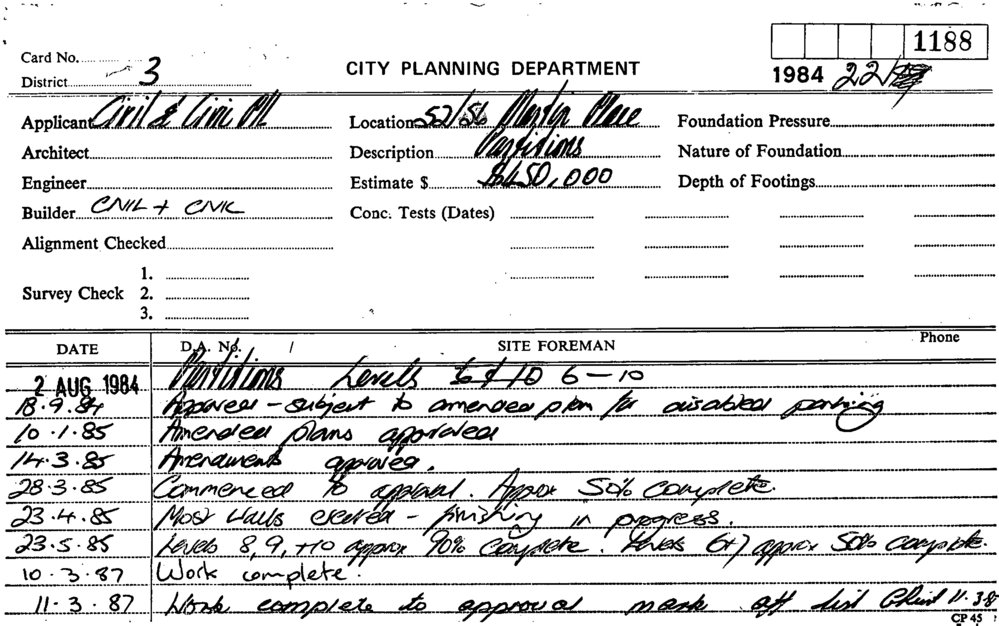 1188
Card No.
District 3
CITY PLANNING DEPARTMENT
1984 221
Applicant Civil & Civic P/L
Location 52/56 Martin Place
Foundation Pressure
Architect
Description Partitions
Nature of Foundation
Engineer
Estimate $ $450,000
Depth of Footings
Builder CIVIL + CIVIC
Conc. Tests (Dates)
Alignment Checked
1.
Survey Check 2.
3.
DATE D.A. No. / SITE FOREMAN Phone
2 AUG 1984 Partitions Levels 6-10
18.9.84 Approved - subject to amended plan for disabled parking
10.1.85 Amended plans approved
14.3.85 Amendments approved.
28.3.85 Commenced to approval. Approx 50% complete.
23.4.85 Most walls erected - finishing in progress.
23.5.85 Levels 8, 9, +10 approx 90% complete. Levels 6+7 approx 50% complete.
10.3.87 Work complete.
11.3.87 Work complete to approval mark off list 11.3.8
CP 45